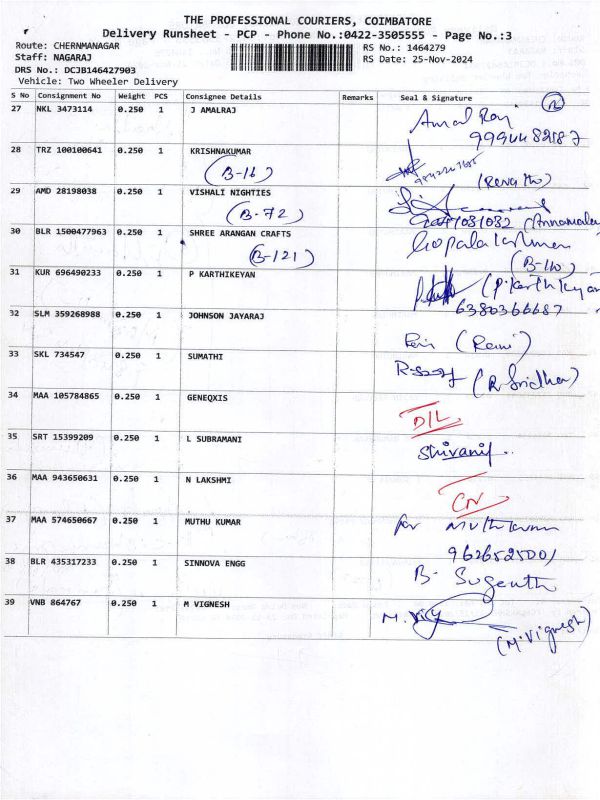 THE PROFESSIONAL COURIERS, COIMBATORE
Delivery Runsheet - PCP - Phone No.:0422-3505555 - Page No.:3
Route: CHERNMANAGAR
RS No.: 1464279
Staff: NAGARAJ
RS Date: 25-Nov-2024
DRS No.: DCJB146427903
Vehicle: Two Wheeler Delivery
S No Consignment No Weight PCS Consignee Details Remarks Seal & Signature
27 NKL 3473114 0.250 1 J AMALRAJ Amal Raj
28 TRZ 100100641 0.250 1 KRISHNAKUMAR
(B-16)
29 AMD 28198038 0.250 1 VISHALI NIGHTIES
(B-72)
30 BLR 1500477963 0.250 1 SHREE ARANGAN CRAFTS Gopalalakshmanan
(B-121) (B-110)
31 KUR 696490233 0.250 1 P KARTHIKEYAN (P.Karthikeyan
6380366687
32 SLM 359268988 0.250 1 JOHNSON JAYARAJ
(Rani)
33 SKL 734547 0.250 1 SUMATHI (R Sridhar)
34 MAA 105784865 0.250 1 GENEQXIS D/L
35 SRT 15399209 0.250 1 L SUBRAMANI Shivanij
36 MAA 943650631 0.250 1 N LAKSHMI CN
37 MAA 574650667 0.250 1 MUTHU KUMAR for Muthukumar
9626525001
38 BLR 435317233 0.250 1 SINNOVA ENGG B. Sugenth
39 VNB 864767 0.250 1 M VIGNESH M. Vig
(M.Vignesh)